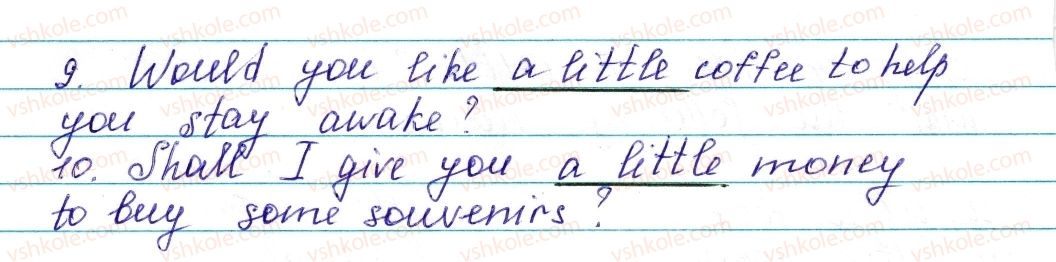 9. Would you like a little coffee to help
you stay awake?
10. Shall I give you a little money
to buy some souvenirs?